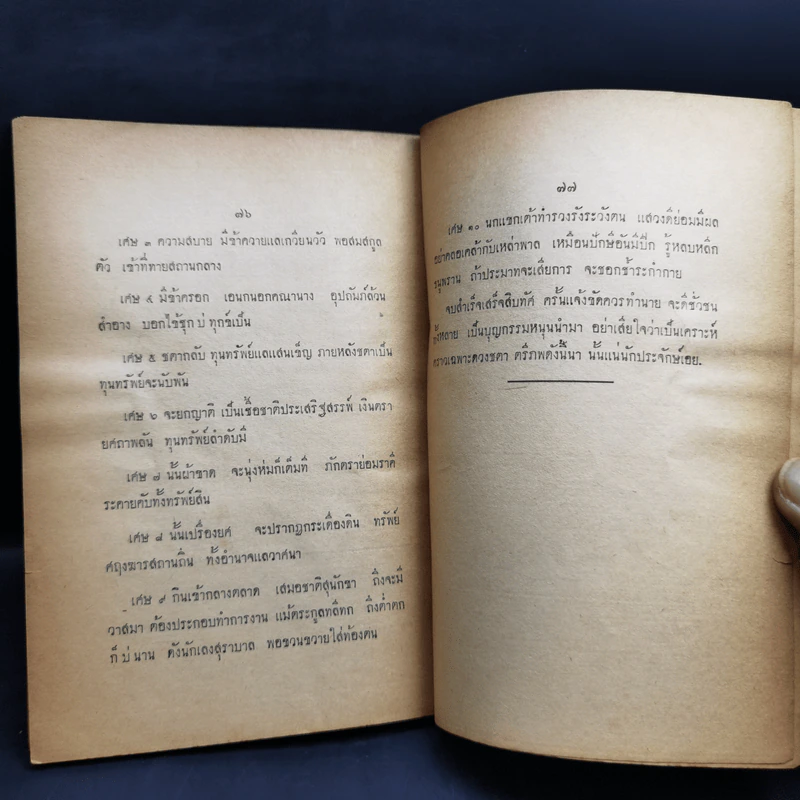 ๗๖
เศษ ๓ ความสบาย มีข้าควายแลเกวียนวัว พอสมสกูล
ตัว เข้าที่ทายสถานกลาง
เศษ ๔ มีข้าครอก เอนกนอกคณานาง อุปถัมภ์ล้วน
สำอาง บอกไข้ชุก บ่ ทุกข์เป็น
เศษ ๕ ชตากลับ ทุนทรัพย์แลแสนเข็ญ ภายหลังชตาเป็น
ทุนทรัพย์จะนับพัน
เศษ ๖ จะยกญาติ เป็นเชื้อชาติประเสริฐสรรพ์ เงินตรา
ยศถาพลัน ทุนทรัพย์ลำดับมี
เศษ ๗ นั้นผ้าขาด จะนุ่งห่มก็เต็มที ภักตราย่อมราคี
ระคายคับทั้งทรัพย์สิน
เศษ ๘ นั้นเปรื่องยศ จะปรากฏกระเดื่องดิน ทรัพย์
ศฤงฆารสถานถิ่น ทั้งอำนาจแลวาศนา
เศษ ๙ กินเข้ากลางตลาด เสมอชาติสุนักขา ถึงจะมี
วาสมา ต้องประกอบทำการงาน แม้ตระกูลทลิทก ถึงต่ำตก
ก็ บ่ นาน ดังนักเลงสุราบาล พอขวนขวายใส่ท้องตน
๗๗
เศษ ๑๐ นกแขกเต้าทำรวงรังระวังตน แสวงดีย่อมมีผล
อย่าคลอเคล้ากับเหล่าพาล เหมือนปักษีอันมีปีก รู้หลบหลีก
ธนูพราน ถ้าประมาทจะเสียการ จะชอกช้ำระกำกาย
จบสำเร็จเสร็จสิบทัศ ครั้นแจ้งชัดควรทำนาย จะดีชั่วชน
ทั้งหลาย เป็นบุญกรรมหนุนนำมา อย่าเสียใจว่าเป็นเคราะห์
คราวเฉพาะดวงชตา ตรีภพดังนี้นา นั้นแน่นักประจักษ์เอย.